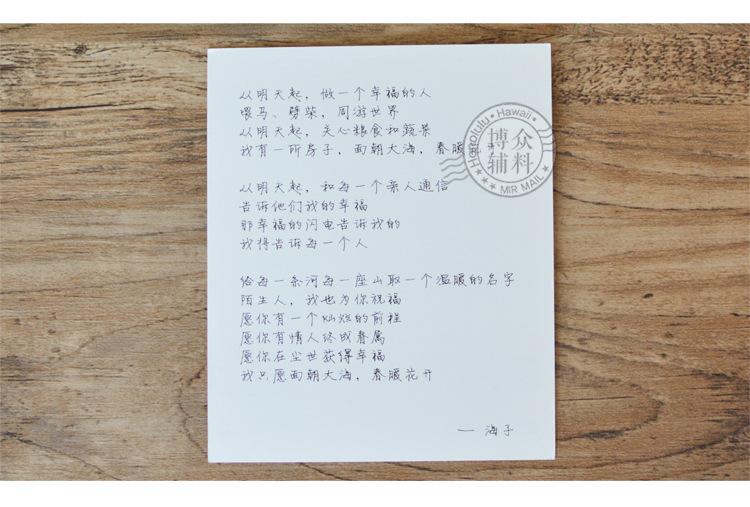 从明天起，做一个幸福的人
喂马、劈柴，周游世界
从明天起，关心粮食和蔬菜
我有一所房子，面朝大海，春暖花开
从明天起，和每一个亲人通信
告诉他们我的幸福
那幸福的闪电告诉我的
我将告诉每一个人
给每一条河每一座山取一个温暖的名字
陌生人，我也为你祝福
愿你有一个灿烂的前程
愿你有情人终成眷属
愿你在尘世获得幸福
我只愿面朝大海，春暖花开
— 海子
Honolulu · Hawaii
博众
辅料
MIR MAIL